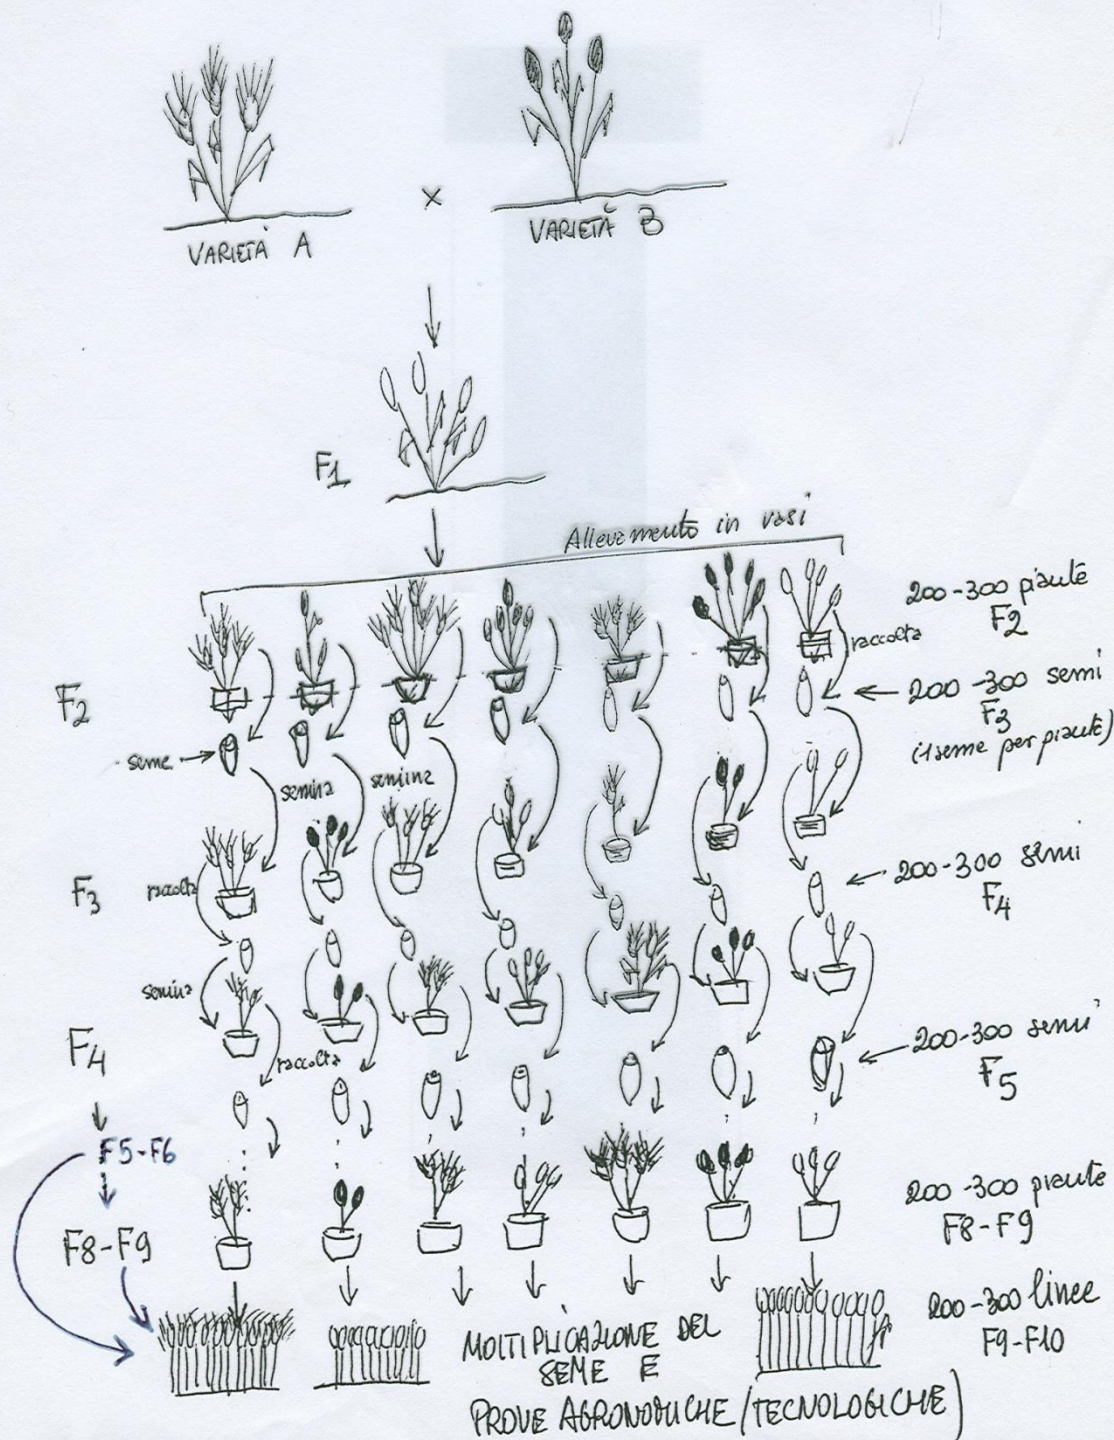 VARIETÀ A
×
VARIETÀ B
F1
Allevamento in vasi
200-300 piante
F2
raccolta
F2
200-300 semi
F3
(1 seme per pianta)
seme
semina
semina
F3
raccolta
200-300 semi
F4
semina
F4
raccolta
200-300 semi
F5
F5-F6
200-300 piante
F8-F9
F8-F9
200-300 linee
F9-F10
MOLTIPLICAZIONE DEL
SEME E
PROVE AGRONOMICHE/TECNOLOGICHE)